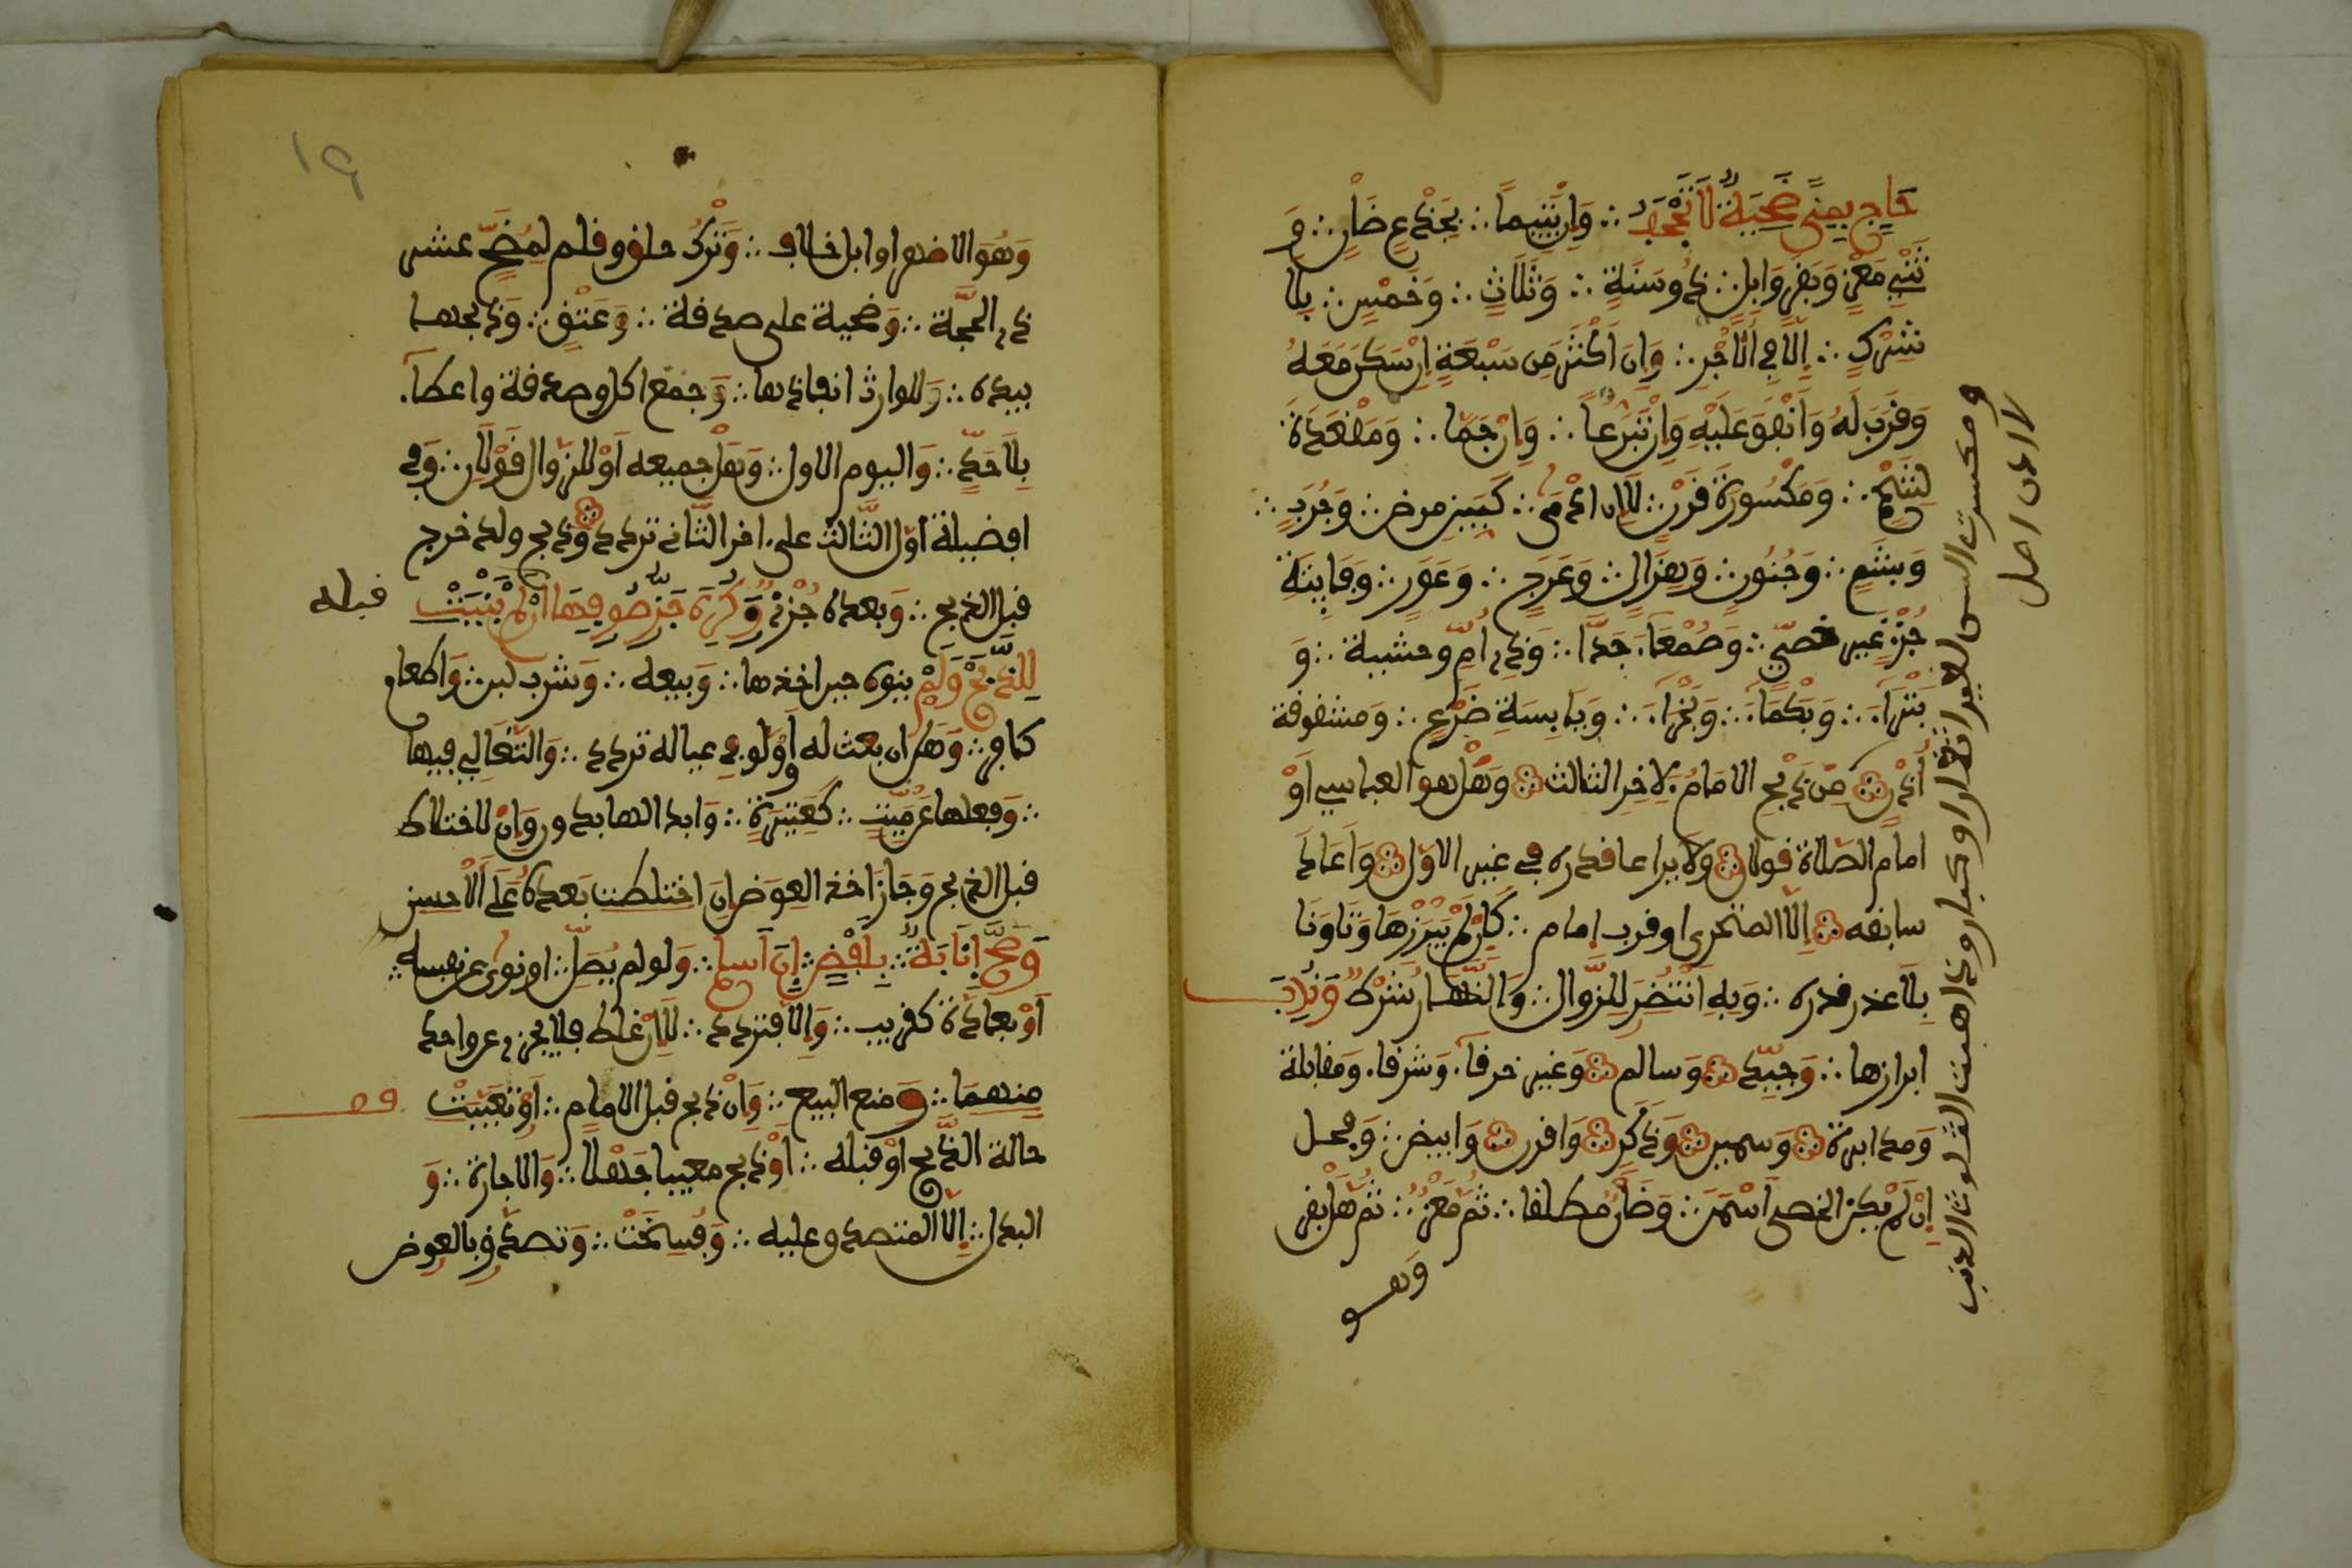 حاج بمنى ضحية لا تجحف ∴ وان يتيما ∴ بجذع ضان ∴ و
ثني معز وبقر وابل ∴ ذي سنة ∴ وثلاث ∴ وخمس ∴ بلا
شرك ∴ الا في الاجر ∴ وان اكثر من سبعة ان سكن معه
وقرب له وانفق عليه وان تبرعا ∴ وان جما ∴ ومقعدة
لشحم ∴ ومكسورة قرن ∴ لا ان ادمى ∴ كبين مرض ∴ وجرب ∴
وبشم ∴ وجنون ∴ وهزال ∴ وعرج ∴ وعور ∴ وفايتة
جزء غير خصي ∴ وصمعاء جدا ∴ وذي ام وحشية ∴ و
بتراء ∴ وبكماء ∴ وبخراء ∴ ويابسة ضرع ∴ ومشقوقة
اذن ∴ من ذبح الامام لاخر الثالث ∴ وهل هو العباسي او
امام الصلاة قولان ∴ ولا يراعا قدره في غير الاول ∴ واعاد
سابقه ∴ الا المتحري اقرب امام ∴ كان لم يبرزها وتاونا
بلا عذر قدره ∴ وبه انتضر للزوال ∴ والنهار شرط وندب
ابرازها ∴ وجيد ∴ وسالم ∴ وغير خرقا وشرقا ومقابلة
ومدابرة ∴ وسمين ∴ وذكر ∴ واقرن ∴ وابيض ∴ وفحل
ان لم يكن الخصي اسمن ∴ وضان مطلقا ∴ ثم معز ∴ ثم هل بقر
وهو
ومكسرت السن لغير اثغار او كبار وذاهبت الثلوث الذنب
لا اذن اصل
١٩
وهو الاضهر او ابل خلاف ∴ وترك حلق وقلم لمضح عشر
ذي الحجة ∴ وضحية على صدقة ∴ وعتق ∴ وذبحها
بيده ∴ وللوارث انفاذها ∴ وجمع اكل وصدقة واعطاء
بلا حد ∴ واليوم الاول ∴ وهل جميعه او للزوال قولان ∴ وفي
افضيلة اول الثالث على اخر الثاني تردد ∴ وذبح ولد خرج
قبل الذبح ∴ وبعده جزء وكره جز صوفها ان لم ينبت قبله
للذبح ولم ينوه حين اخذها ∴ وبيعه ∴ وشرب لبن ∴ واطعام
كافر ∴ وهل ان بعث له او ولو في عياله تردد ∴ والتغالي فيها
∴ وفعلها عن ميت ∴ كعتيرة ∴ وابدالها بدون وان لاختلاط
قبل الذبح وجاز اخذ العوض ان اختلطت بعده على الاحسن
وصح انابة ∴ بلفض ∴ ان اسلم ∴ ولو لم يصل ∴ او نوى عن نفسه ∴
او بعادة كقريب ∴ والا فتردد ∴ لا ان غلط فلا يجزي عن واحد
منهما ∴ ومنع البيع ∴ وان ذبح قبل الامام ∴ او تعيبت
حالة الذبح او قبله ∴ او ذبح معيبا جهلا ∴ والاجارة ∴ و
البدل ∴ الا المتصدق عليه ∴ وفسخت ∴ وتصدق بالعوض